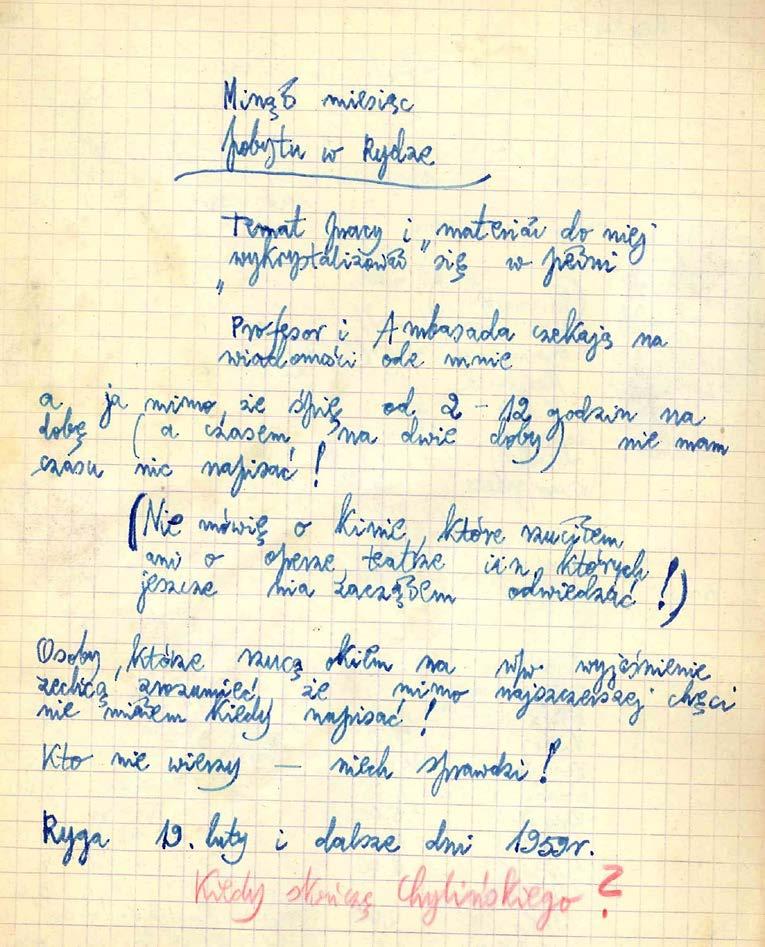 Minął miesiąc
pobytu w Rydze
Temat pracy i „materiał do niej
"wykrystalizował" się w pełni
Profesor i Ambasada czekają na
wiadomości ode mnie
a ja mimo, że śpię od 2 - 12 godzin na
dobę (a czasem na dwie doby) nie mam
czasu nic napisać!
(Nie mówię o kinie, które rzuciłem
ani o operze, teatrze i i.n. których
jeszcze nia zacząłem odwiedzać!)
Osoby, które rzucą okiem na w/w. wyjaśnienie
zechcą zrozumieć, że mimo najszczerszej chęci
nie miałem kiedy napisać!
Kto nie wierzy — niech sprawdzi!
Ryga 19. luty i dalsze dni 1959r.
Kiedy skończę Chylińskiego?